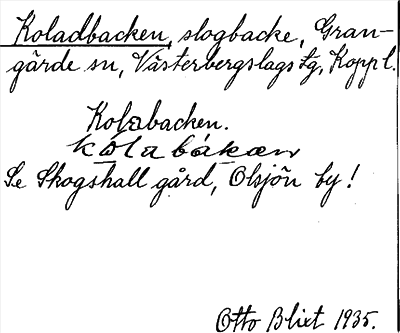 Koladbacken, slogbacke, Gran-
gärde sn, Västerbergslags tg, Kopp l.
Kolabacken.
kòlabákæn
Se Skogshall gård, Olsjön by!
Otto Blixt 1935.